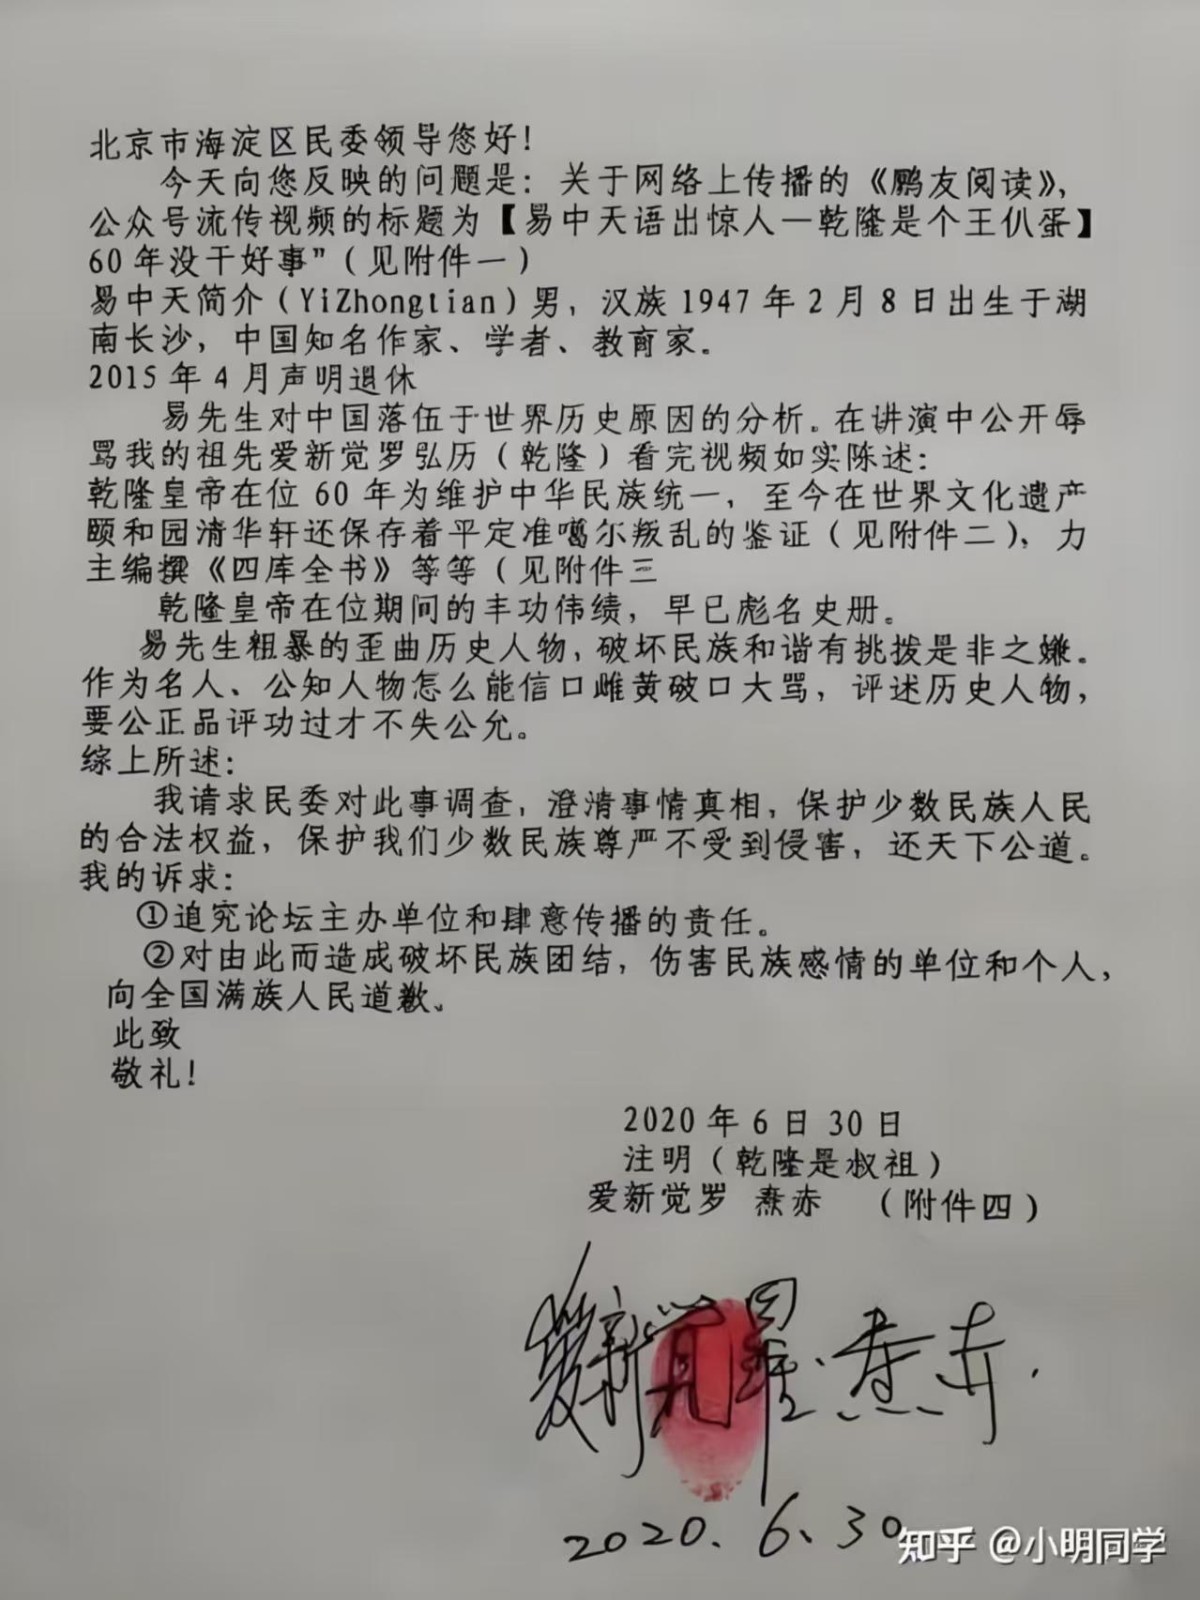 北京市海淀区民委领导您好!
今天向您反映的问题是：关于网络上传播的《鹏友阅读》,
公众号流传视频的标题为【易中天语出惊人—乾隆是个王仈蛋】
60年没干好事”（见附件一）
易中天简介（YiZhongtian）男，汉族1947年2月8日出生于湖
南长沙，中国知名作家、学者、教育家。
2015年4月声明退休
易先生对中国落伍于世界历史原因的分析。在讲演中公开辱
骂我的祖先爱新觉罗弘历（乾隆）看完视频如实陈述：
乾隆皇帝在位60年为维护中华民族统一，至今在世界文化遗产
颐和园清华轩还保存着平定准噶尔叛乱的鉴证（见附件二），力
主编撰《四库全书》等等（见附件三
乾隆皇帝在位期间的丰功伟绩，早已彪名史册。
易先生粗暴的歪曲历史人物，破坏民族和谐有挑拨是非之嫌。
作为名人、公知人物怎么能信口雌黄破口大骂，评述历史人物，
要公正品评功过才不失公允。
综上所述：
我请求民委对此事调查，澄清事情真相，保护少数民族人民
的合法权益，保护我们少数民族尊严不受到侵害，还天下公道。
我的诉求：
①追究论坛主办单位和肆意传播的责任。
②对由此而造成破坏民族团结，伤害民族感情的单位和个人，
向全国满族人民道歉。
此致
敬礼!
2020年6日30日
注明（乾隆是叔祖）
爱新觉罗 焘赤 （附件四）
爱新觉罗·焘赤.
2020.6.30
知乎 @小明同学